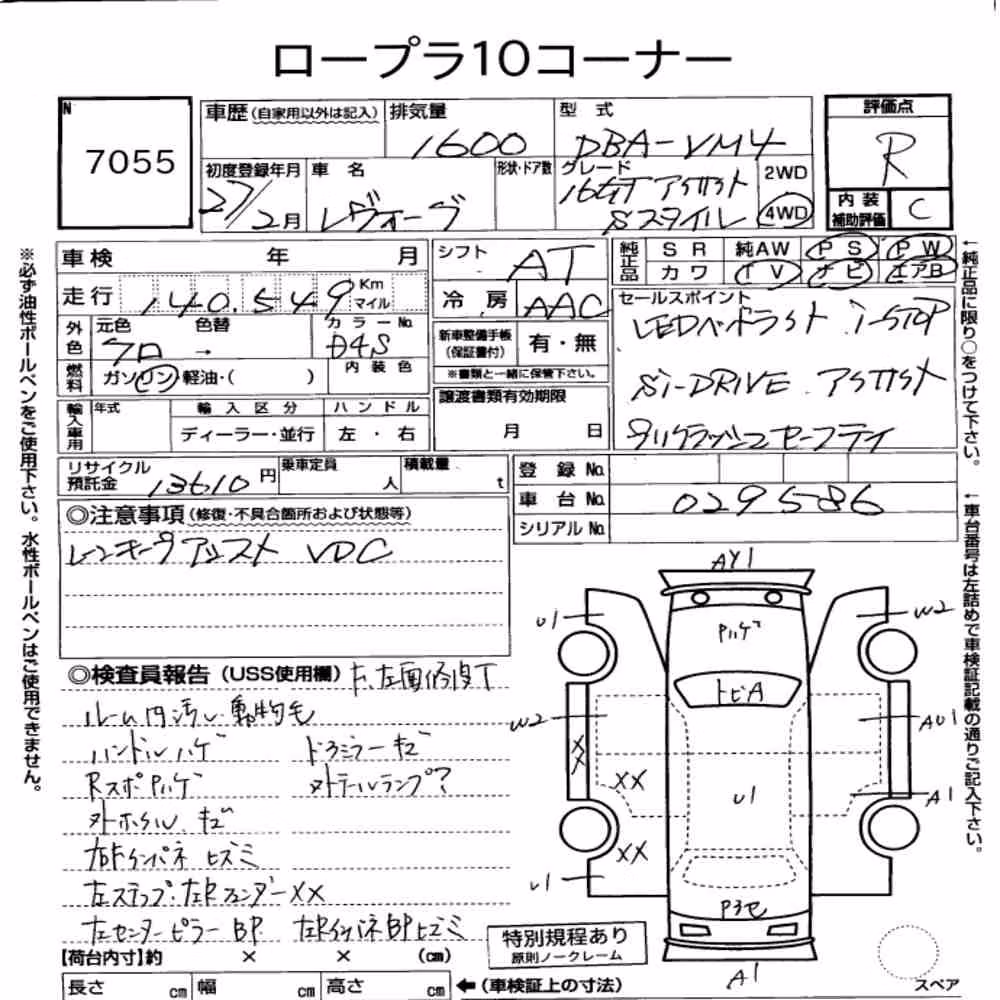 ロープラ10コーナー
N
7055
車歴(自家用以外は記入)
排気量
1600
型式
DBA-VM4
評価点
R
初度登録年月
27/2月
車名
レヴォーグ
形状・ドア数
グレード
1.6GT アシスト
Sスタイル
2WD
4WD
内装
補助評価
C
車検 年 月
走行 140,549 Km
マイル
シフト
AT
冷房
AAC
純正品
SR 純AW PS PW
カワ TV ナビ エアB
セールスポイント
LEDヘッドライト i-STOP
Si-DRIVE アシスト
外色
元色 色替
クロ →
カラーNo.
D4S
燃料
ガソリン・軽油・( )
内装色
新車整備手帳
(保証書付)
有・無
※書類と一緒に保管下さい。
譲渡書類有効期限
月 日
輸入車用
年式
輸入区分
ディーラー・並行
ハンドル
左・右
リサイクル
預託金
13610円
乗車定員
人
積載量
t
登録No.
車台No.
029586
シリアルNo.
◎注意事項(修復・不具合箇所および状態等)
レーンキープアシスト VDC
◎検査員報告(USS使用欄)
F、左面修復丁
ルーム内汚れ・動物毛
ハンドルハゲ ドラミラーキズ
RスポPハゲ
外テールランプ?
外ホイル、キズ
右Fインパネ ヒズミ
左ステップ・左Rフェンダー XX
左センターピラーBP
左RインパネBPヒズミ
【荷台内寸】約 × × (cm)
長さ cm
幅 cm
高さ cm
←(車検証上の寸法)
特別規程あり
原則ノークレーム
AY1
U1
W2
Pハゲ
トビA
W2
AU1
XX
XX
U1
A1
XX
U1
Pヨセ
A1
スペア
※必ず油性ボールペンをご使用下さい。水性ボールペンはご使用できません。
←純正品に限り○をつけて下さい。
←車台番号は左詰めで車検証記載の通りご記入下さい。